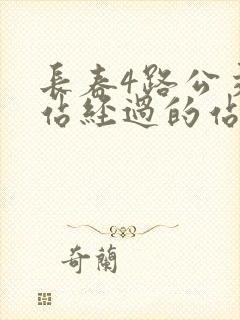 長春4路公交
佔經過的佔
奇蘭